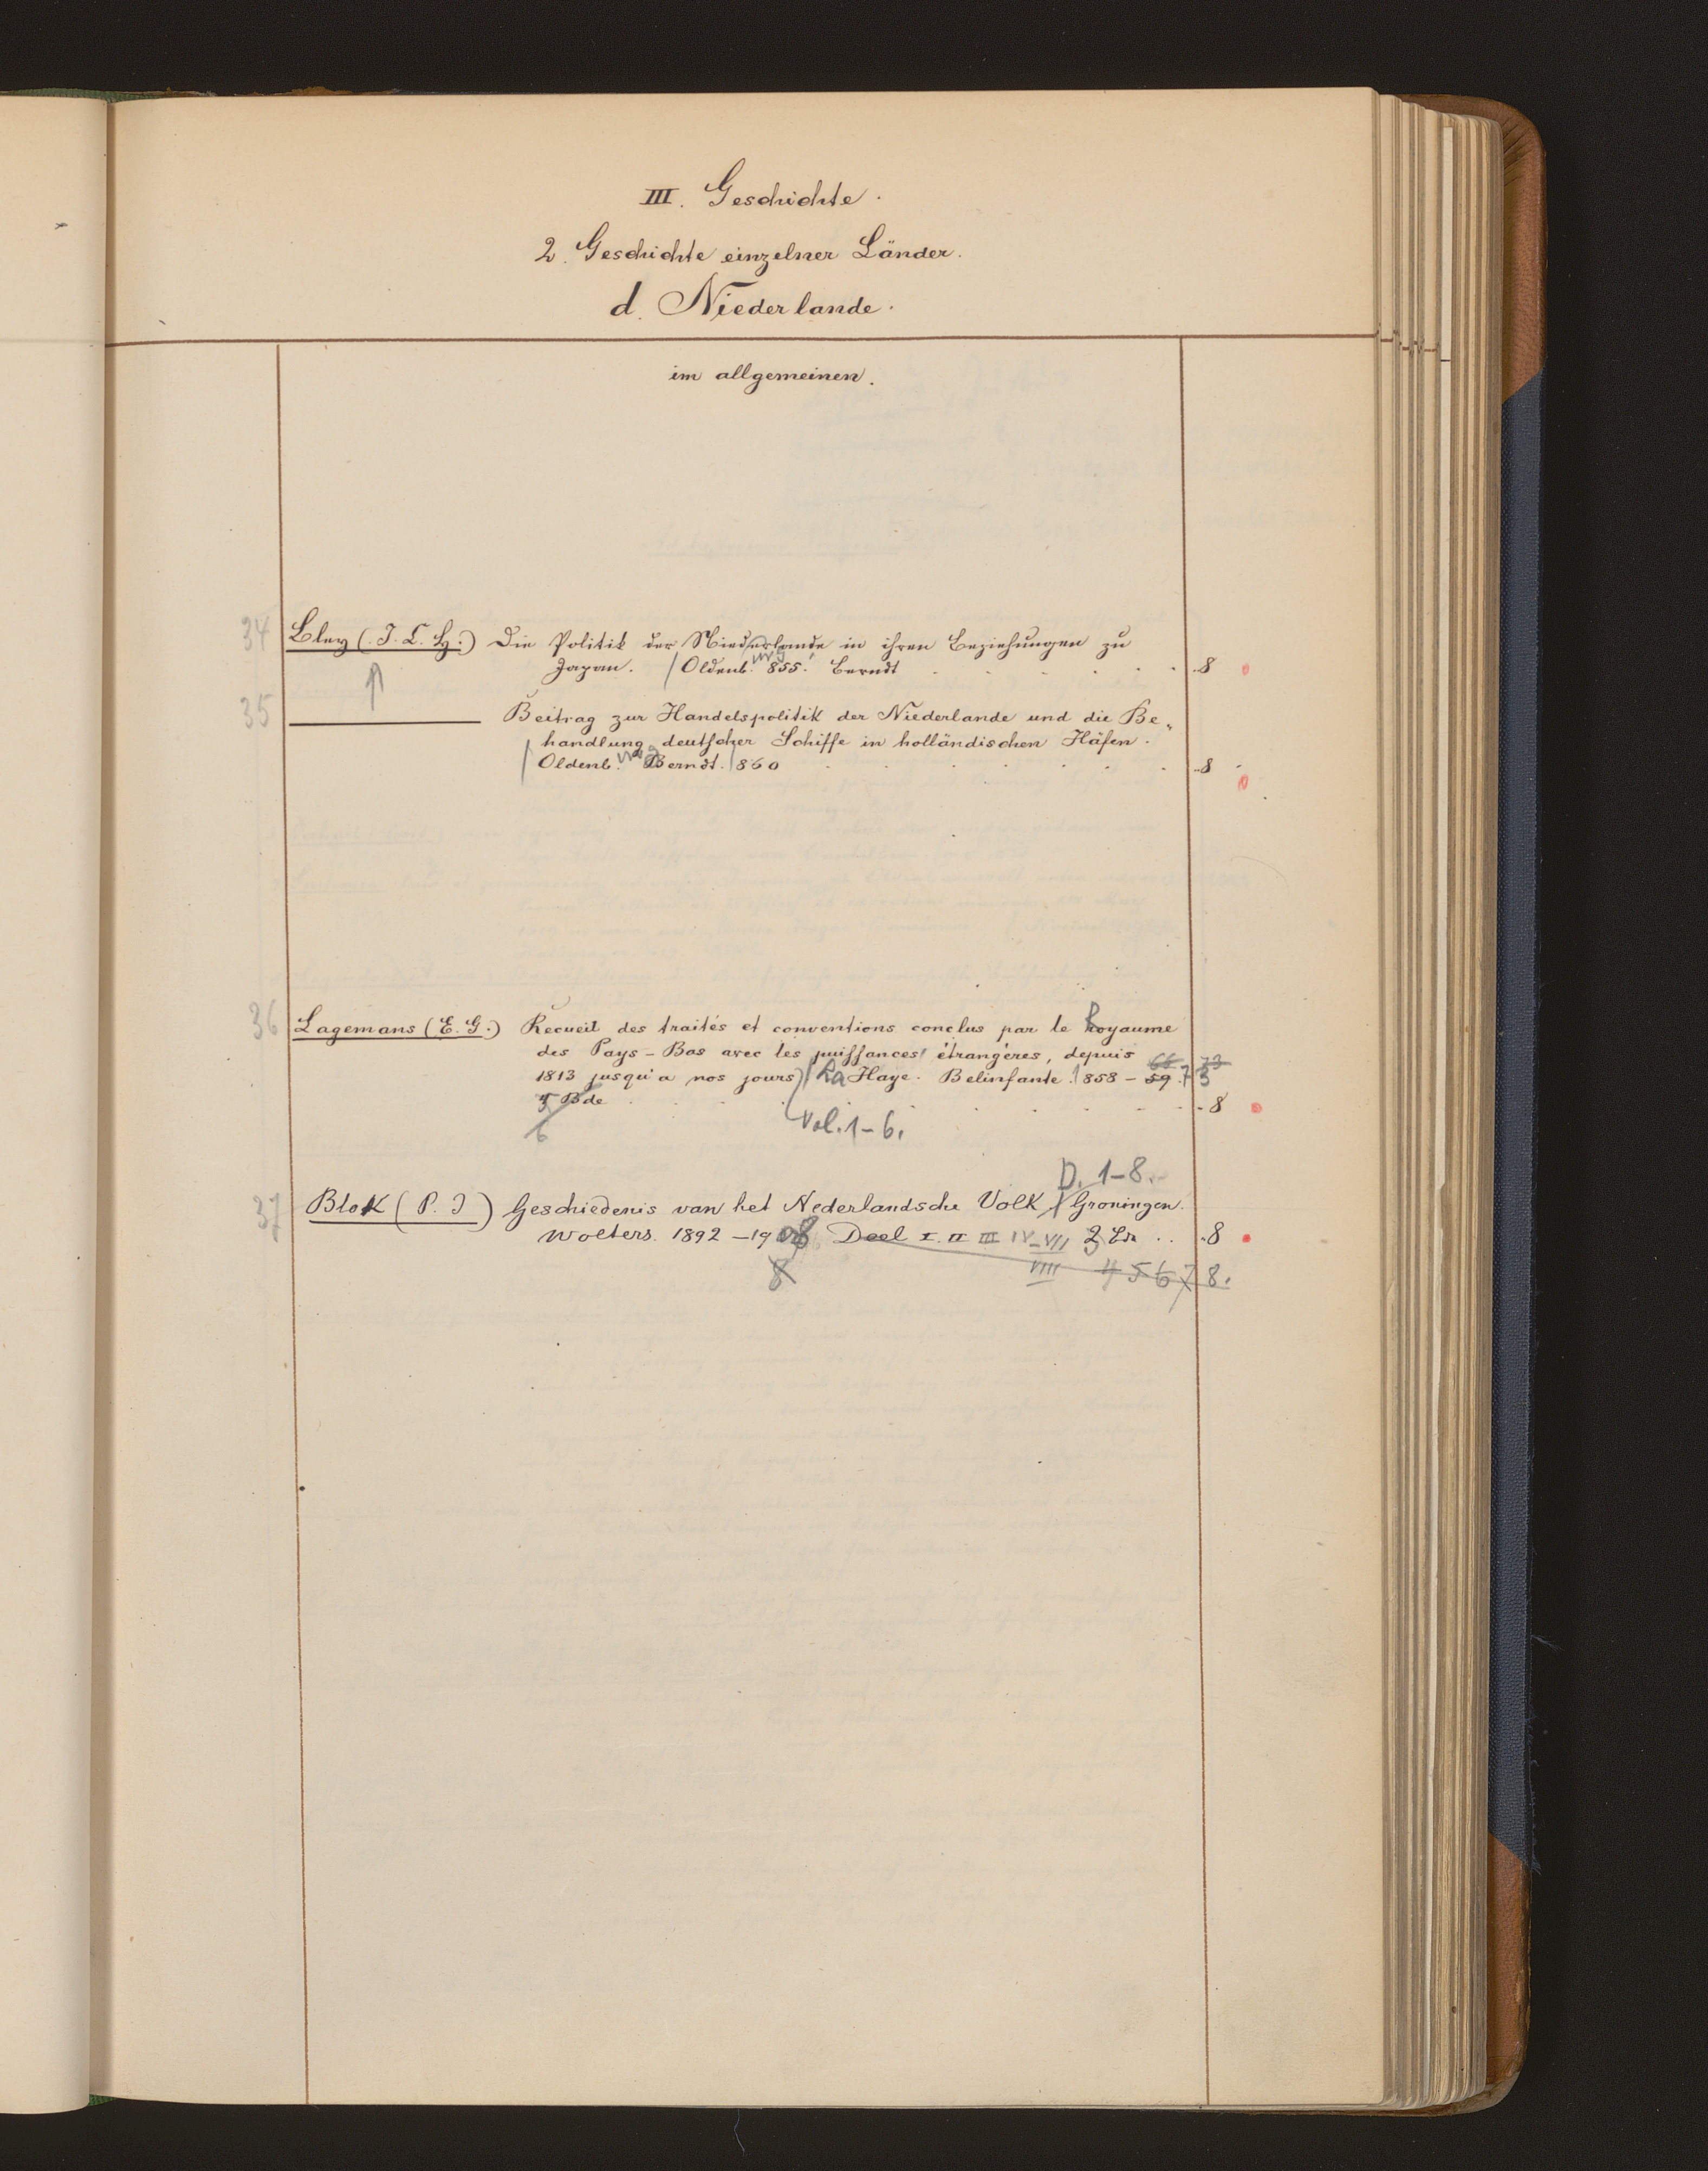 III. Geschichte.
2. Geschichte einzelner Länder.
d. Niederlande.
im allgemeinen.
34 Bley (J. L. H.) Die Politik der Niederlande in ihren Beziehungen zu
Japan. Oldenb. 855. Berndt 8
35 Beitrag zur Handelspolitik der Niederlande und die Be-
handlung deutscher Schiffe in holländischen Häfen.
Oldenb. Berndt. 1860 8
36 Lagemans (E. G.) Recueil des traités et conventions conclus par le Royaume
des Pays-Bas avec les puissances étrangères, depuis
1813 jusqu'a nos jours) La Haye. Belinfante. 1858 - 59. 73
Bde 8
6 Vol. 1-6.
D. 1-8.
37 Blok (P. J) Geschiedenis van het Nederlandsche Volk Groningen.
Wolters. 1892 - 19 Deel I. II III IV-VII 2 8
8 VIII 4 5 6 7 8.